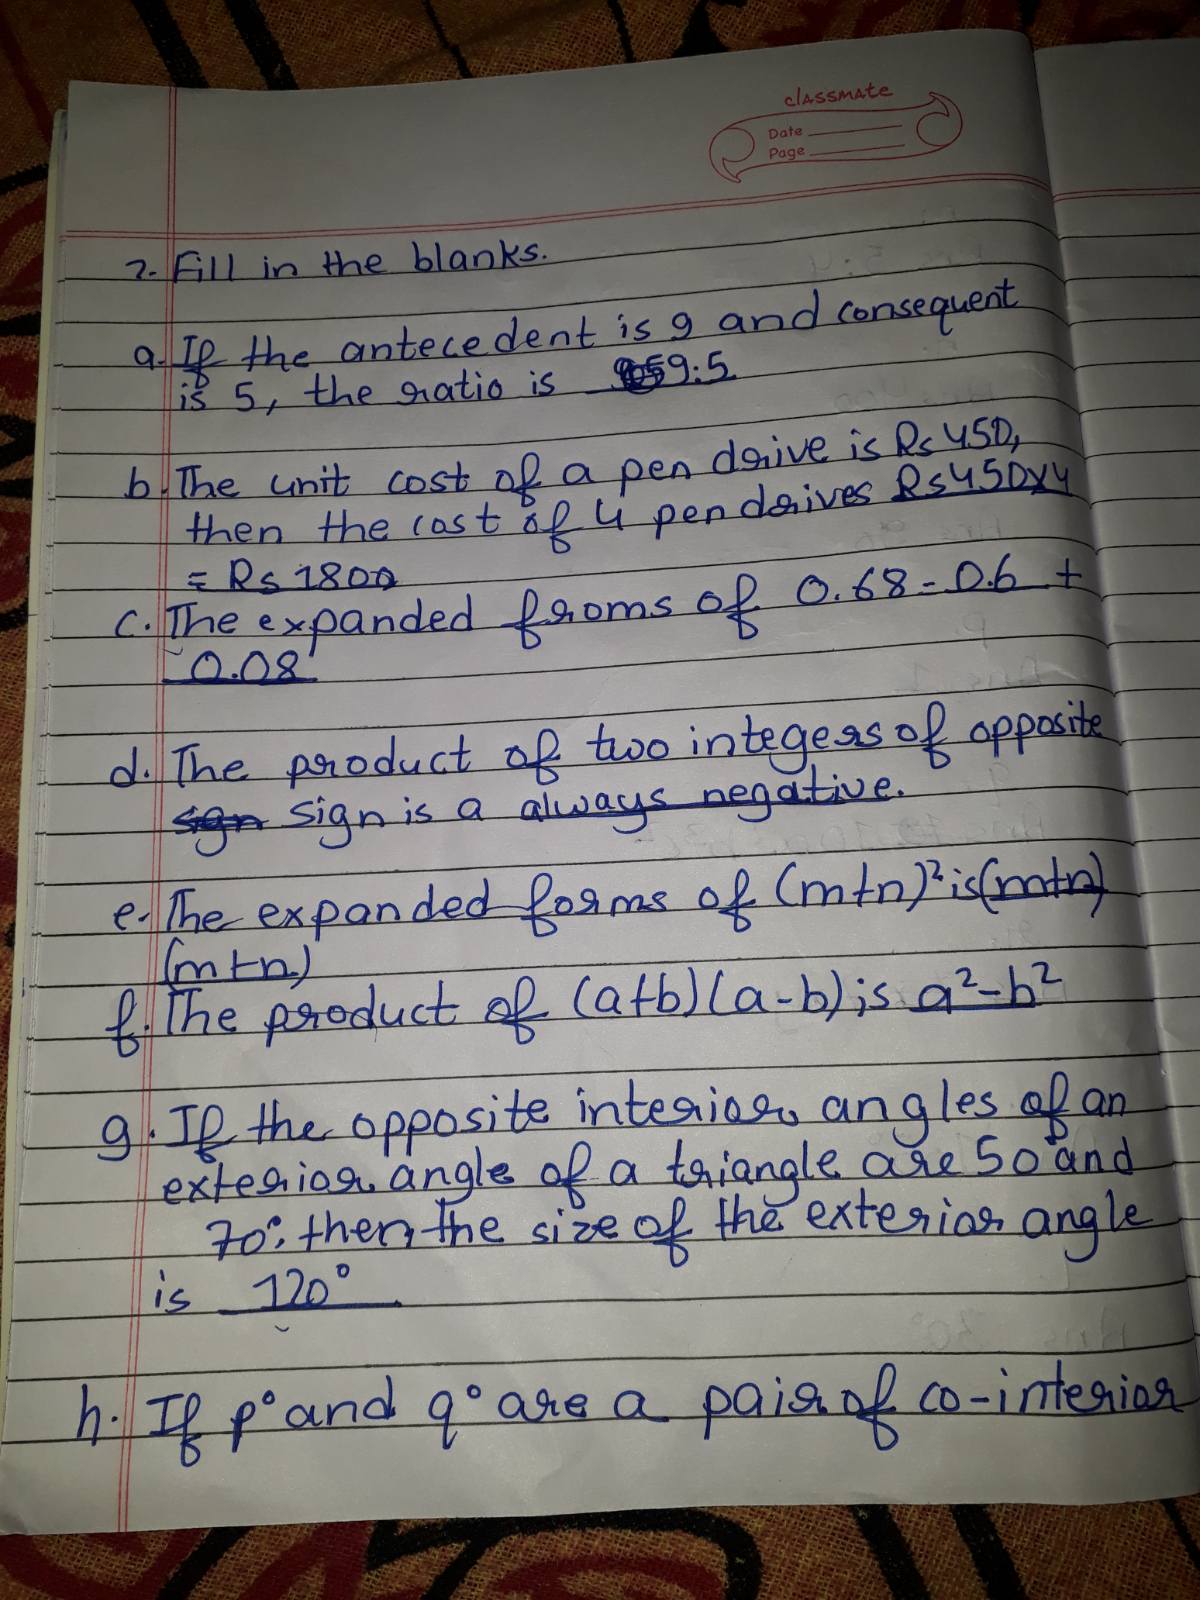 classmate
Date
Page
2. Fill in the blanks.
a. If the antecedent is 9 and consequent
is 5, the ratio is 9:5
b. The unit cost of a pen drive is Rs 450,
then the cost of 4 pen drives Rs 450x4
= Rs 1800
c. The expanded froms of 0.68 = 0.6 +
0.08
d. The product of two integers of opposite
sgn sign is a always negative.
e. The expanded forms of (m+n)² is (m+n)
(m+n)
f. The product of (a+b)(a-b) is a²-b²
g. If the opposite interior angles of an
exterior angle of a triangle are 50° and
70°, then the size of the exterior angle
is 120°
h. If p° and q° are a pair of co-interior